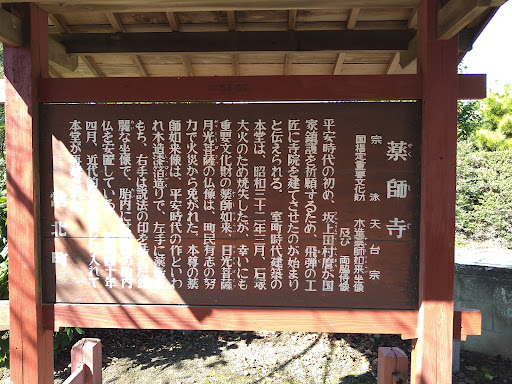 薬師寺
宗派 天台宗
国指定重要文化財 木造薬師如来坐像
及び両脇侍像
平安時代の初め、坂上田村麿が国
家鎮護を祈願するため、飛彈の工
匠に寺院を建てさせたのが始まり
と伝えられる。室町時代建築の
本堂は、昭和三十二年三月、石塚
大火のため焼失したが、幸いにも
重要文化財の薬師如来、日光菩薩
月光菩薩の仏像は、町民有志の努
力で火災から免がれた。本尊の薬
師如来像は、平安時代の作といわ
れ木造漆箔造りで、左手に薬壺を
もち、右手は説法の印を
麗な坐像で、胎内に 胎内
仏を安置している。 四十年
四月、近代 入れて
本堂が再
常北町